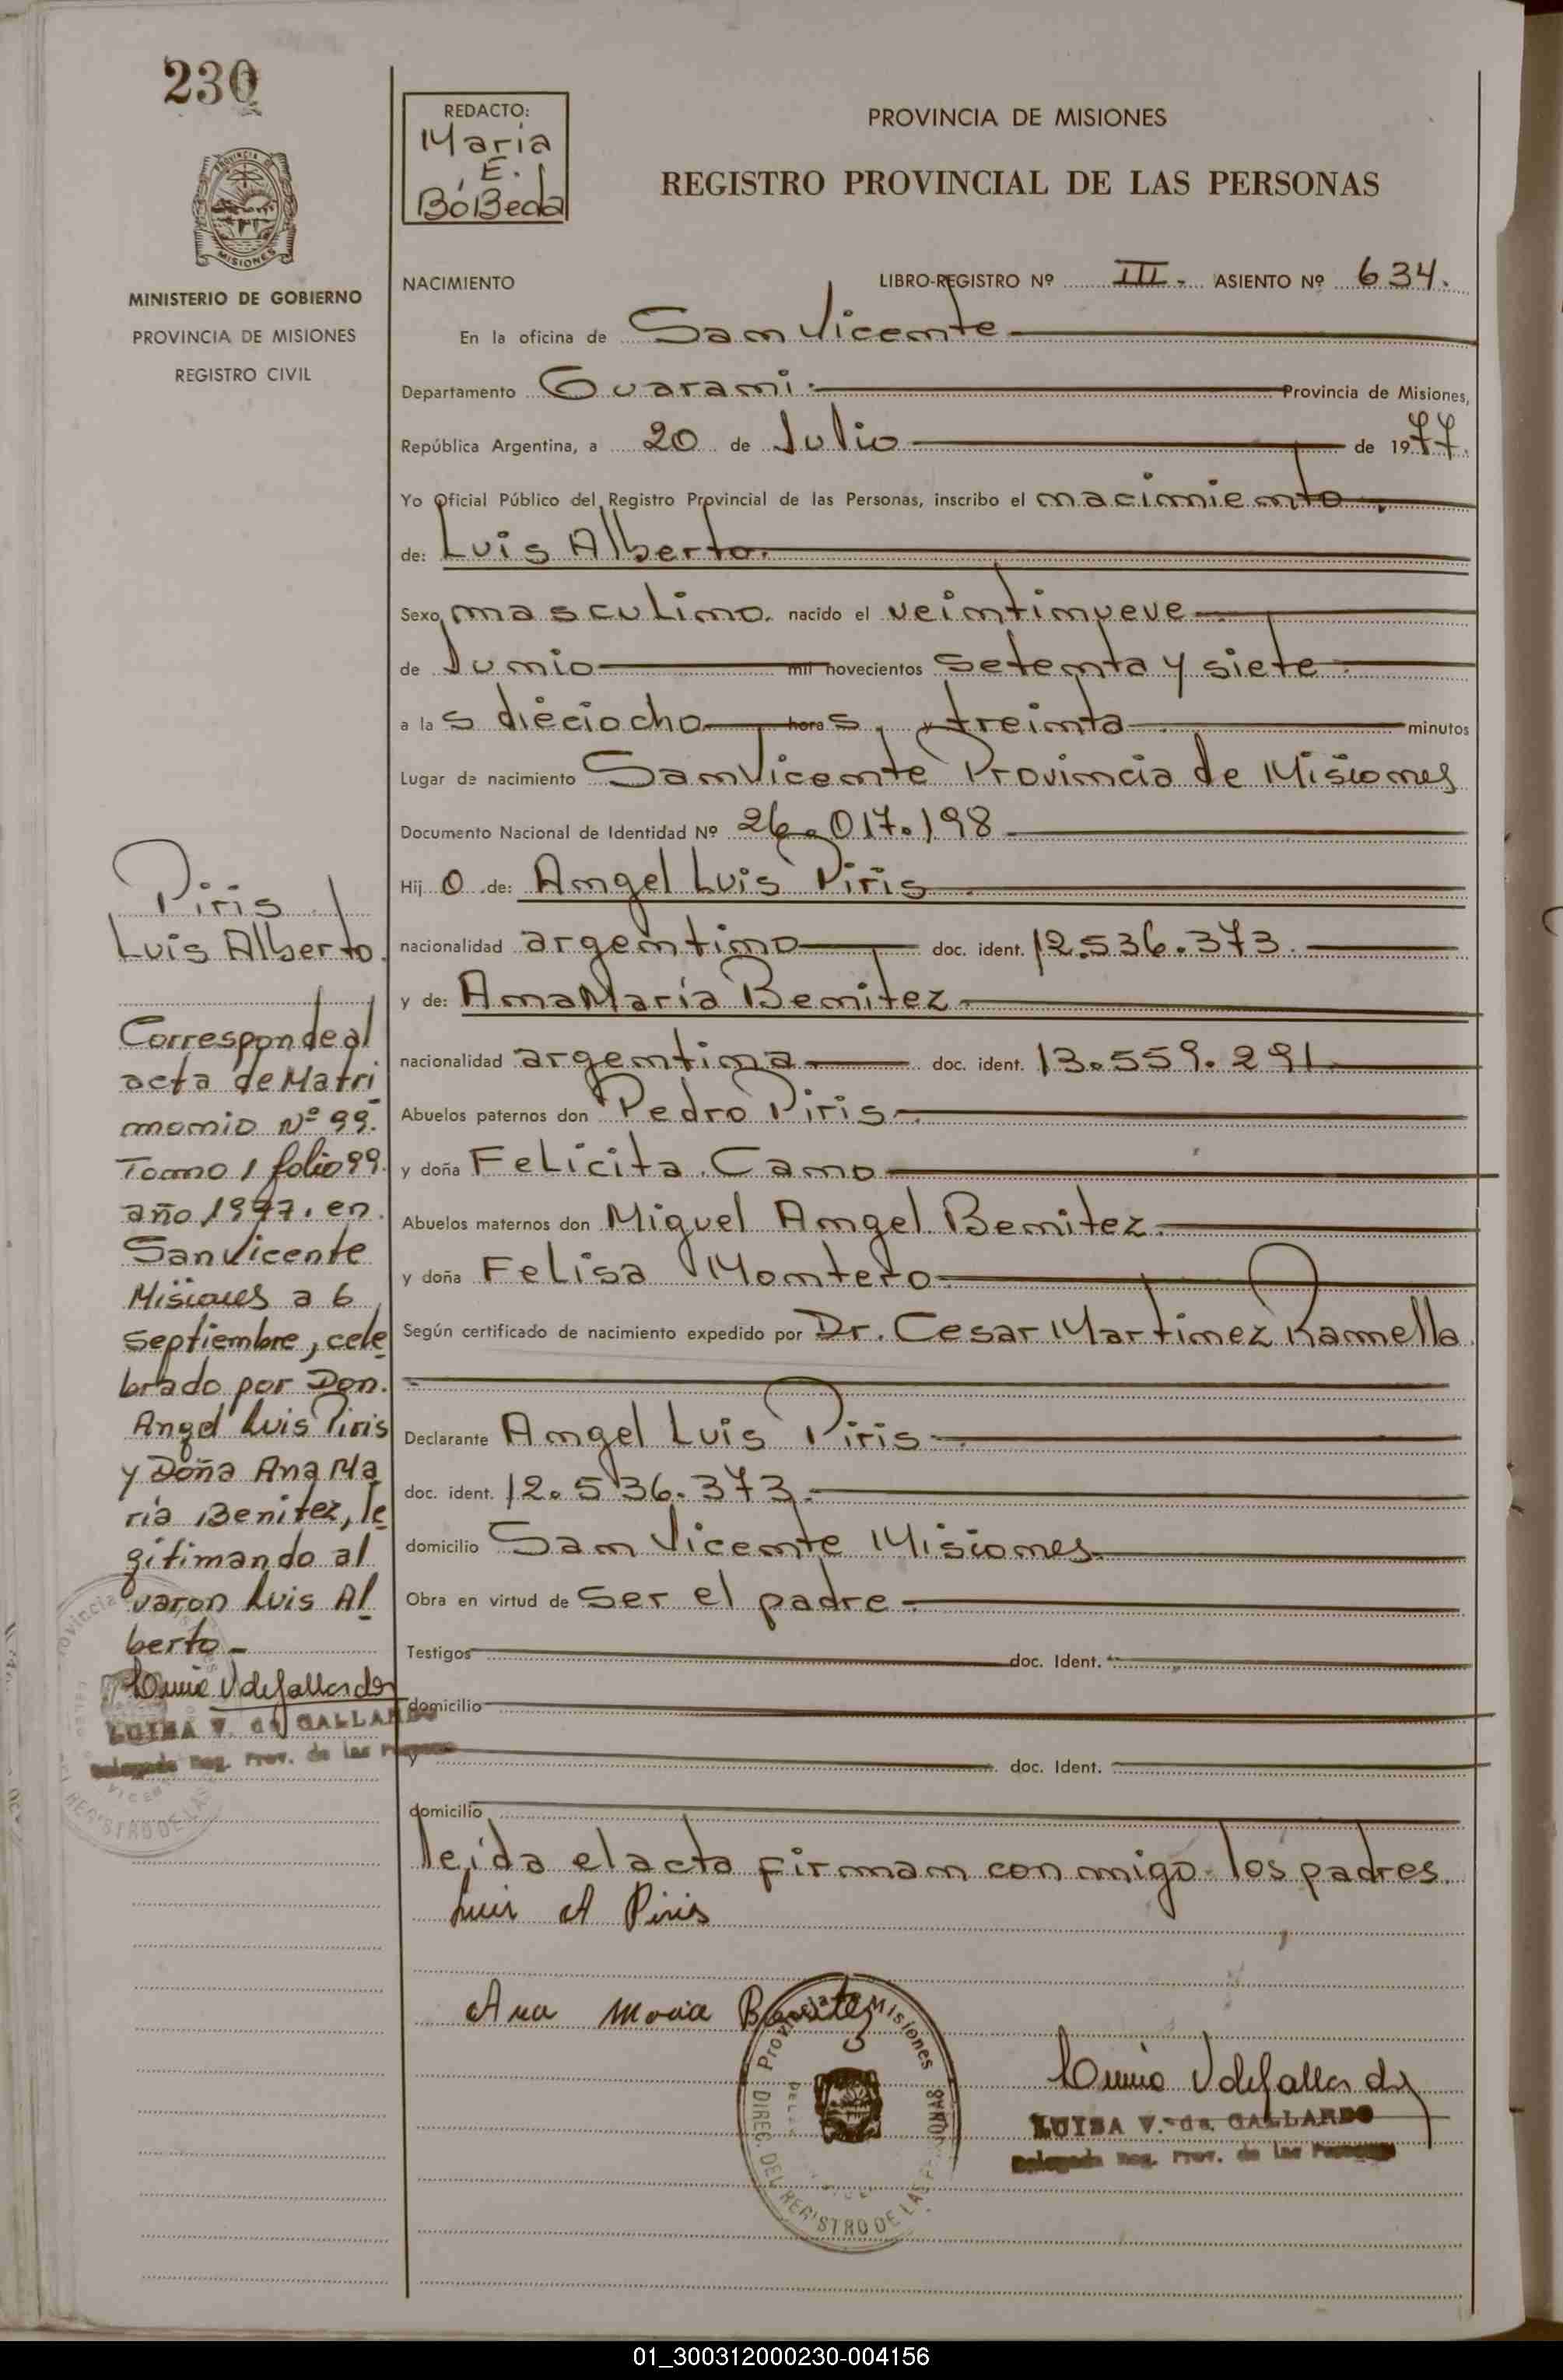 230
REDACTO:
Maria
E.
BóBeda
PROVINCIA DE MISIONES
REGISTRO PROVINCIAL DE LAS PERSONAS
PROVINCIA DE
MISIONES
MINISTERIO DE GOBIERNO
PROVINCIA DE MISIONES
REGISTRO CIVIL
NACIMIENTO LIBRO-REGISTRO Nº III.- ASIENTO Nº 634.
En la oficina de San Vicente
Departamento Guarani. Provincia de Misiones,
República Argentina, a 20 de Julio de 1977.
Yo Oficial Público del Registro Provincial de las Personas, inscribo el nacimiento.
de: Luis Alberto.
Sexo masculino. nacido el veintinueve
de Junio mil novecientos setenta y siete
a las dieciocho horas, y treinta minutos
Lugar de nacimiento San Vicente Provincia de Misiones
Documento Nacional de Identidad Nº 26.017.198
Hijo de: Angel Luis Piris
nacionalidad argentino doc. ident. 12.536.373.
y de: Ana Maria Benitez
nacionalidad argentina doc. ident. 13.559.291
Abuelos paternos don Pedro Piris
y doña Felicita Cano
Abuelos maternos don Miguel Angel Benitez
y doña Felisa Montero
Según certificado de nacimiento expedido por Dr. Cesar Martinez Ramella
Declarante Angel Luis Piris
doc. ident. 12.536.373.
domicilio San Vicente Misiones
Obra en virtud de ser el padre
Testigos doc. Ident.
domicilio
y doc. Ident.
domicilio
leida el acta firman conmigo los padres.
Luis A Piris
Ana Maria Benitez
Provincia de Misiones
DIREC. DEL REGISTRO DE LAS PERSONAS
LUISA V. de GALLARDO
Delegada Reg. Prov. de las Personas
Piris
Luis Alberto.
Corresponde al
acta de Matri
monio Nº 99.
Tomo 1 folio 99.
año 1977. en
San Vicente
Misiones a 6
septiembre, cele
brado por Don.
Angel Luis Piris
y Doña Ana Ma
ria Benitez, le
gitimando al
varon Luis Al
berto-
LUISA V. de GALLARDO
Delegada Reg. Prov. de las Personas
01_300312000230-004156